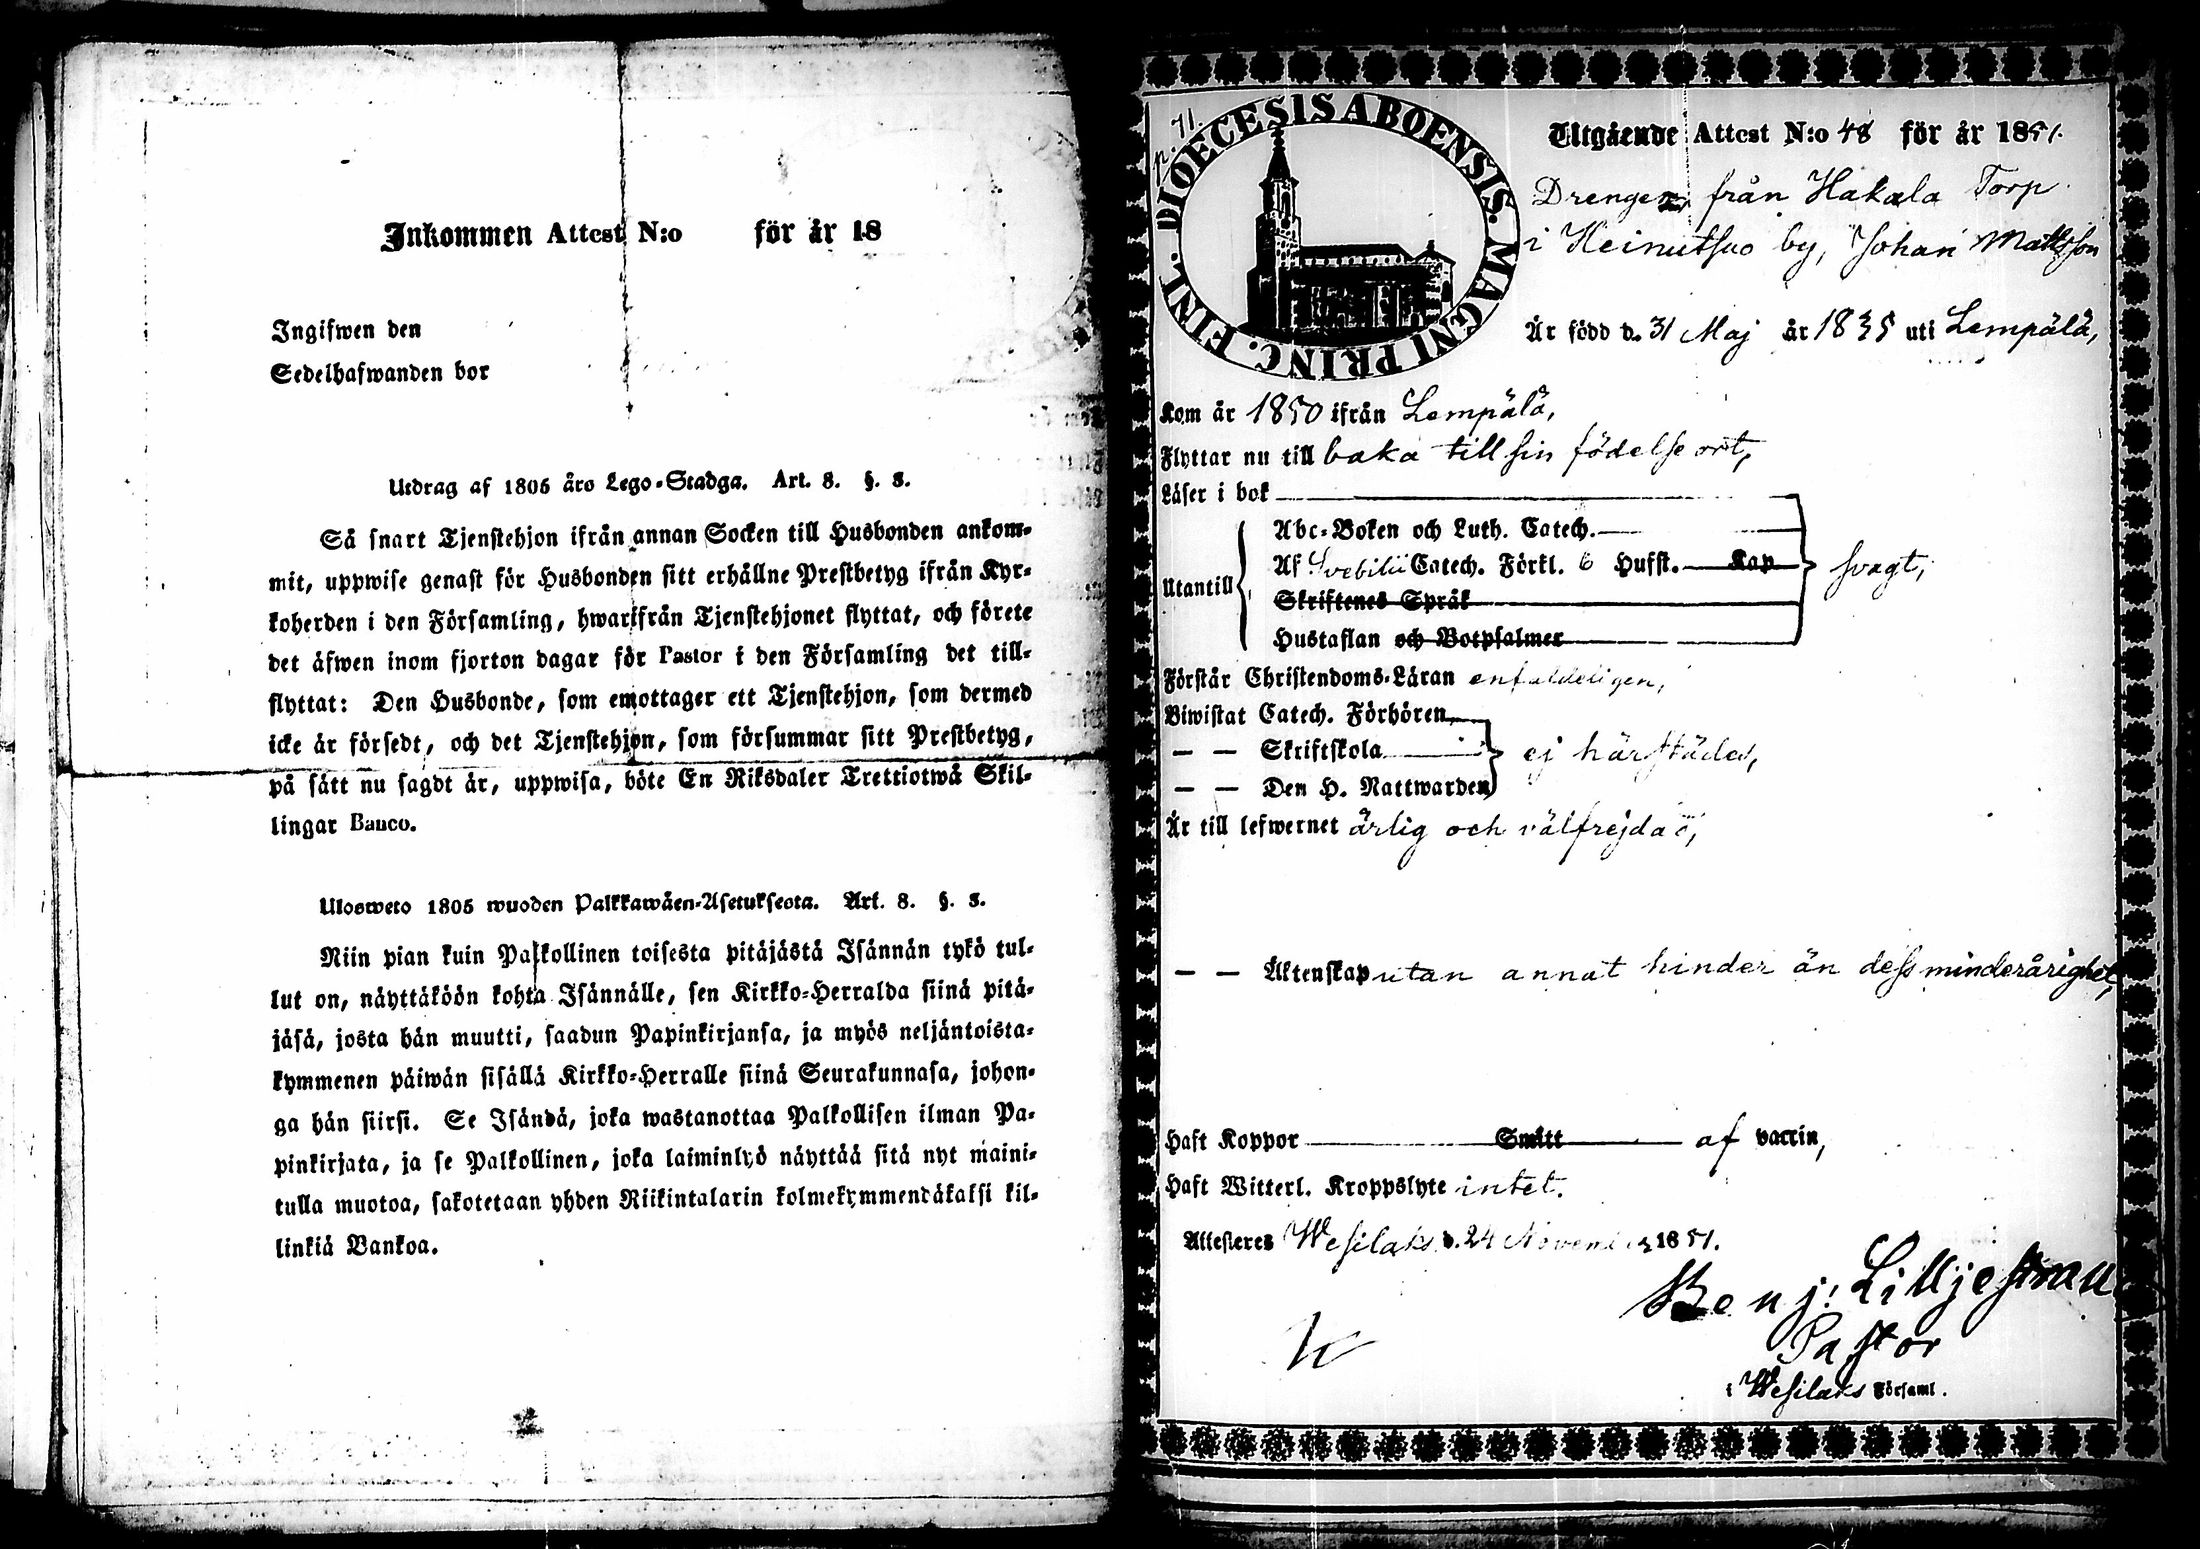 Inkommen Attest N:o för år 18
Ingifwen den
Sedelhafwanden bor
Utdrag af 1805 års Lego-Stadga. Art. 8. §. 3.
Så snart Tjenstehjon ifrån annan Socken till Husbonden ankom-
mit, uppwise genast för Husbonden sitt erhållne Prestbetyg ifrån Kyr-
koherden i den Församling, hwarifrån Tjenstehjonet flyttat, och förete
det äfwen inom fjorton dagar för Pastor i den Församling det till-
flyttat: Den Husbonde, som emottager ett Tjenstehjon, som dermed
icke är försedt, och det Tjenstehjon, som försummar sitt Prestbetyg,
på sätt nu sagdt är, uppwisa, böte En Riksdaler Trettiotwå Skil-
lingar Banco.
Ulosweto 1805 wuoden Palkkawäen-Asetuksesta. Art. 8. §. 3.
Niin pian kuin Palkollinen toisesta pitäjästä Isännän tykö tul-
lut on, näyttäköön kohta Isännälle, sen Kirkko-Herralda siinä pitä-
jäsä, josta hän muutti, saadun Papinkirjansa, ja myös neljäntoista-
kymmenen päiwän sisällä Kirkko-Herralle siinä Seurakunnasa, johon-
ga hän siirsi. Se Isändä, joka wastanottaa Palkollisen ilman Pa-
pinkirjata, ja se Palkollinen, joka laiminlyö näyttää sitä nyt maini-
tulla muotoa, sakotetaan yhden Riikintalarin kolmekymmendäkaksi kil-
linkiä Bankoa.
p. 71.
DIOECESIS ABOENSIS. MAGNI PRINC. FINL.
Utgående Attest N:o 48 för år 1851.
Drengen från Hakala Torp
i Heinutsuo by, Johan Mattsson
Är född d. 31 Maj år 1835 uti Lempälä,
Kom år 1850 ifrån Lempälä,
Flyttar nu till baka till sin födelse ort,
Läser i bok
Abc-Boken och Luth. Catech.
Utantill Af Svebilii Catech. Förkl. 6 Hufst. Kap svagt,
Skriftenes Språk
Hustaflan och Botpsalmer
Förstår Christendoms-Läran enfaldeligen,
Biwistat Catech. Förhören
— — Skriftskola ej härstädes,
— — Den H. Nattwarden
Är till lefwernet ärlig och välfrejdad,
— — Äktenskap utan annat hinder än dess minderårighet,
Haft Koppor Smitt af vaccin,
Haft Witterl. Kroppslyte intet.
Attesteres Wesilaks d. 24 November 1851.
Benj: Lilljestrau
Pastor
i Wesilaks Församl.